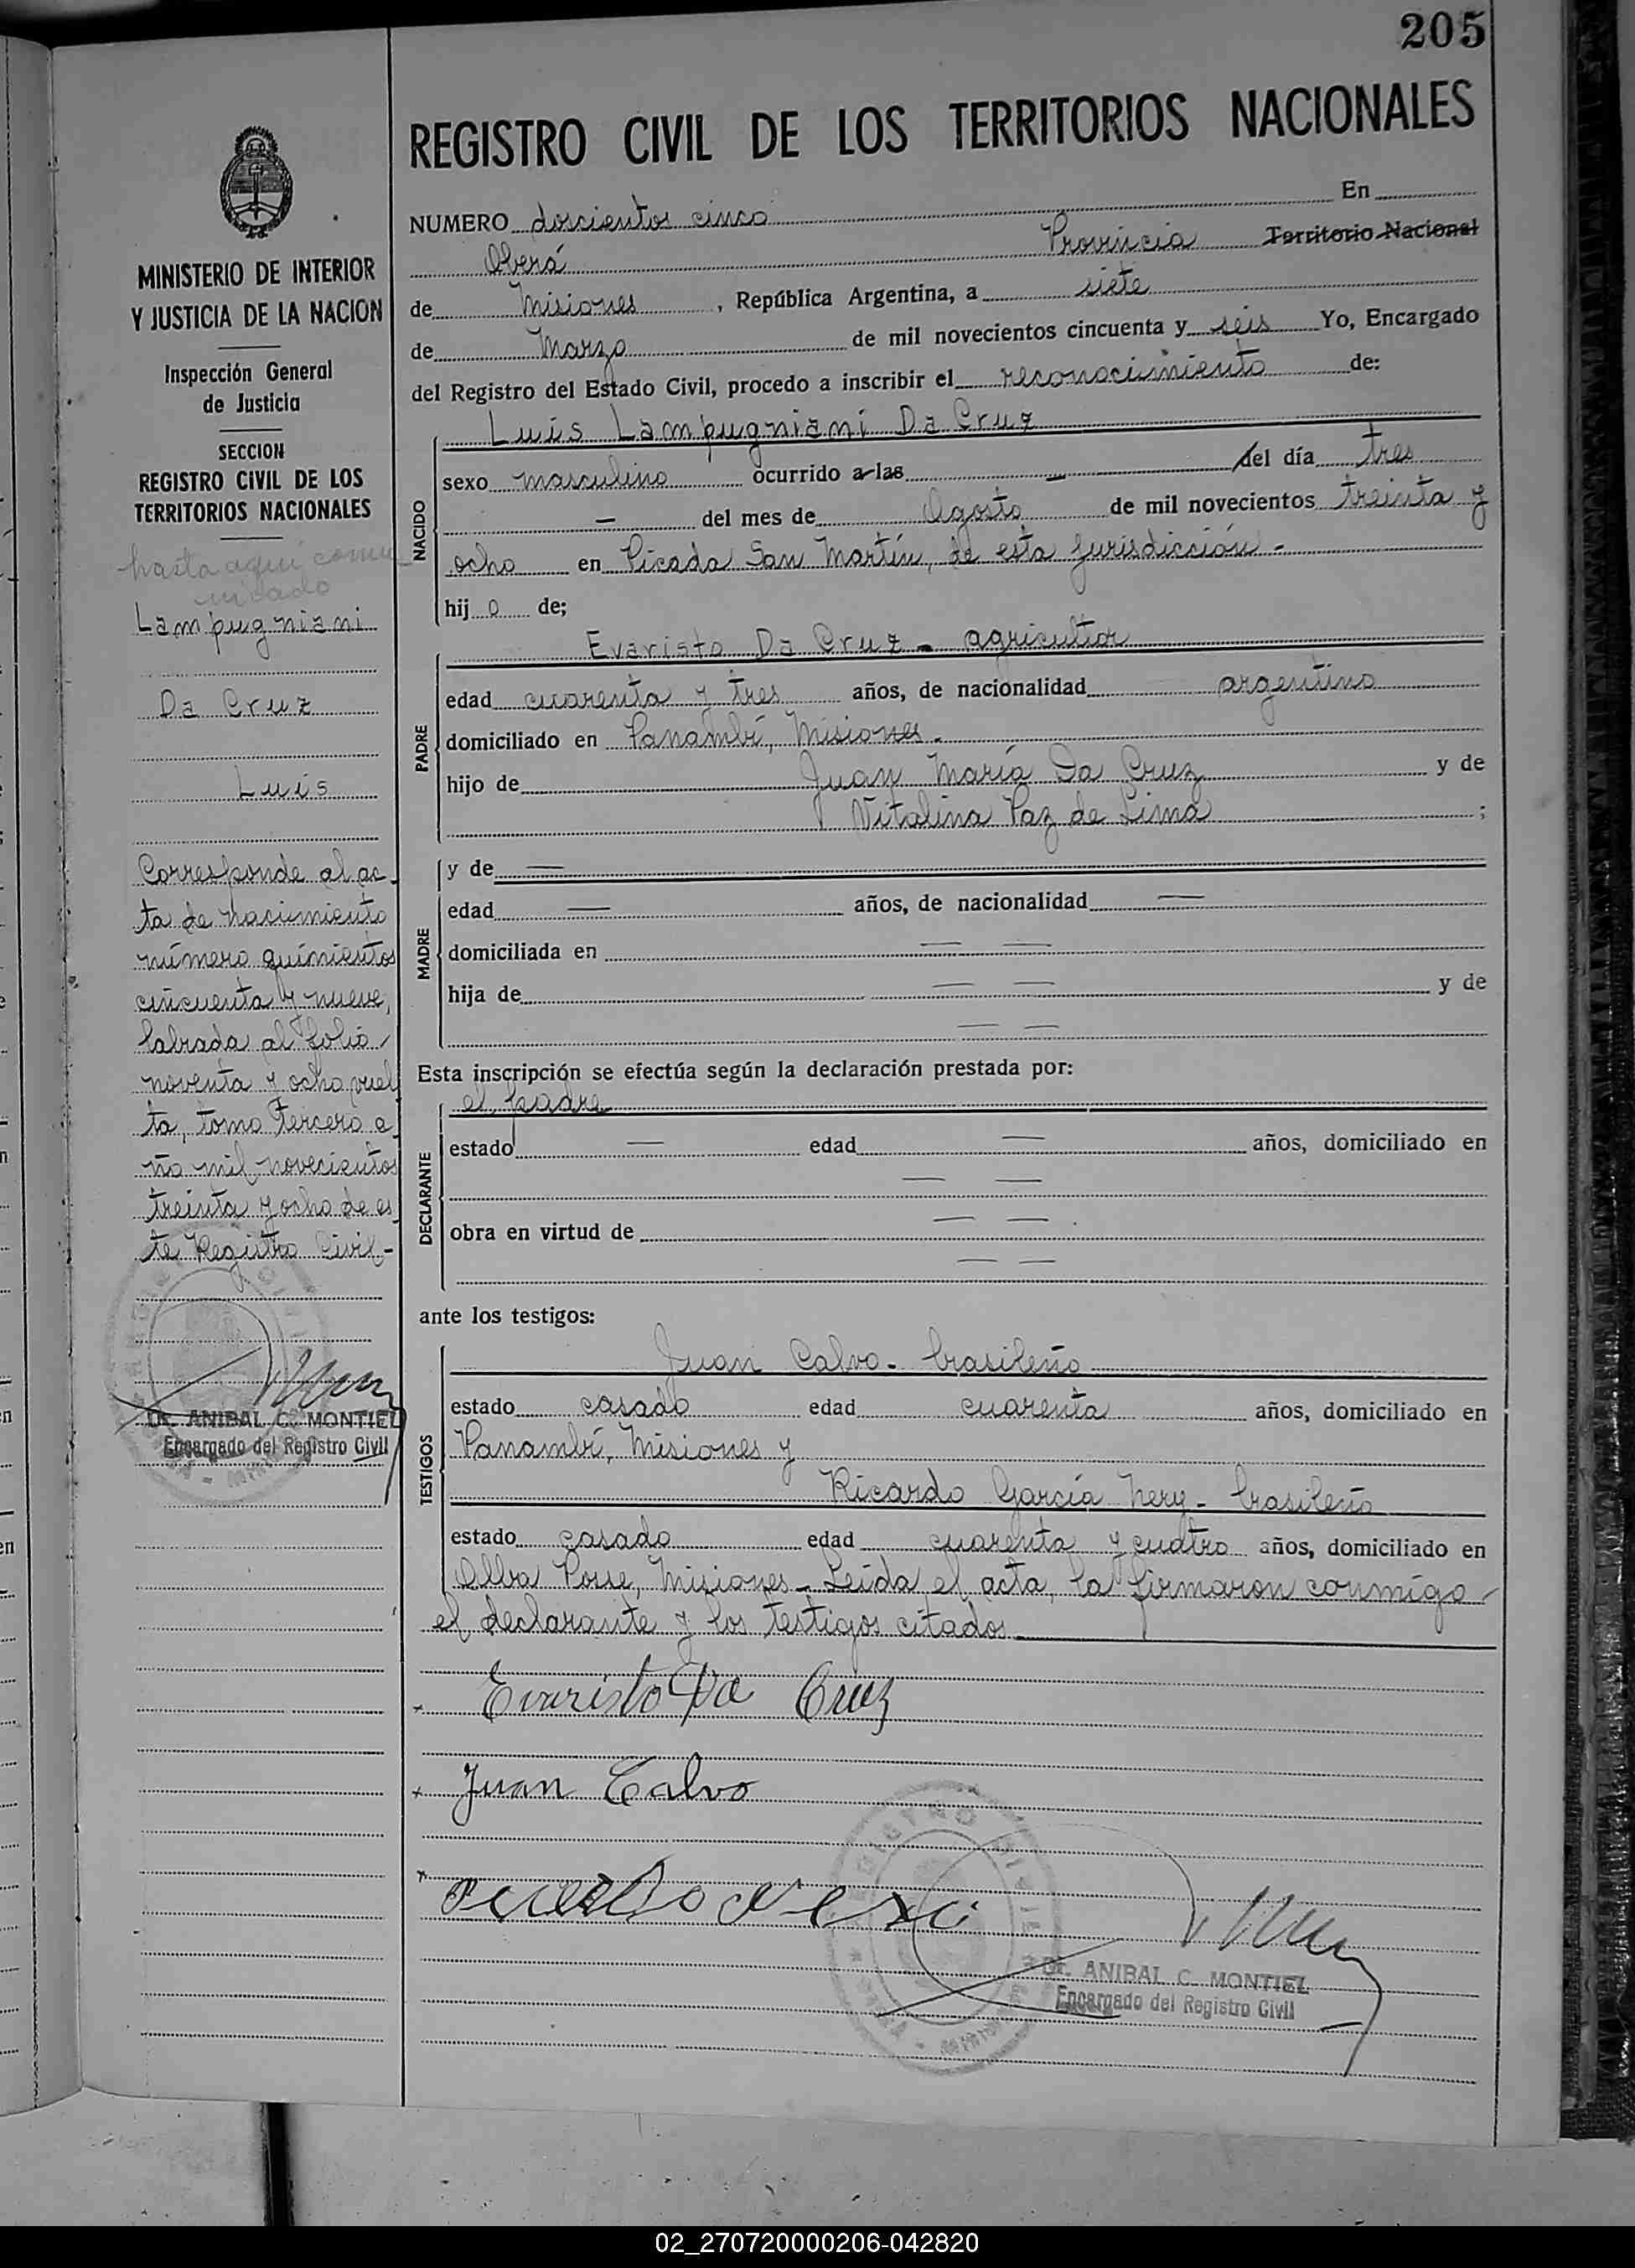 205
REGISTRO CIVIL DE LOS TERRITORIOS NACIONALES
MINISTERIO DE INTERIOR
Y JUSTICIA DE LA NACION
Inspección General
de Justicia
SECCION
REGISTRO CIVIL DE LOS
TERRITORIOS NACIONALES
hasta aquí comu
nicado
Lampugniani
Da Cruz
Luis
Corresponde al ac
ta de nacimiento
número quinientos
cincuenta y nueve,
labrada al folio
noventa y ocho vuel
ta, tomo tercero a
ño mil novecientos
treinta y ocho de es
te Registro Civil-
Dr. ANIBAL C. MONTIEL
Encargado del Registro Civil
NUMERO doscientos cinco En
Oberá Provincia Territorio Nacional
de Misiones, República Argentina, a siete
de Marzo de mil novecientos cincuenta y seis Yo, Encargado
del Registro del Estado Civil, procedo a inscribir el reconocimiento de:
NACIDO
Luis Lampugniani Da Cruz
sexo masculino ocurrido a las — del día tres
— del mes de Agosto de mil novecientos treinta y
ocho en Picada San Martín, de esta jurisdicción-
hij o de;
PADRE
Evaristo Da Cruz - agricultor
edad cuarenta y tres años, de nacionalidad argentino
domiciliado en Panambí, Misiones-
hijo de Juan María Da Cruz y de
Vitalina Paz de Lima ;
MADRE
y de —
edad — años, de nacionalidad —
domiciliada en — —
hija de — — y de
— —
Esta inscripción se efectúa según la declaración prestada por:
DECLARANTE
el padre
estado — edad — años, domiciliado en
— —
obra en virtud de — —
— —
ante los testigos:
TESTIGOS
Juan Calvo - brasileño
estado casado edad cuarenta años, domiciliado en
Panambí, Misiones y
Ricardo García Nery - brasileño
estado casado edad cuarenta y cuatro años, domiciliado en
Alba Posse, Misiones - Leída el acta, la firmaron conmigo
el declarante y los testigos citados
Evaristo Da Cruz
Juan Calvo
Dr. ANIBAL C. MONTIEL
Encargado del Registro Civil
02_270720000206-042820